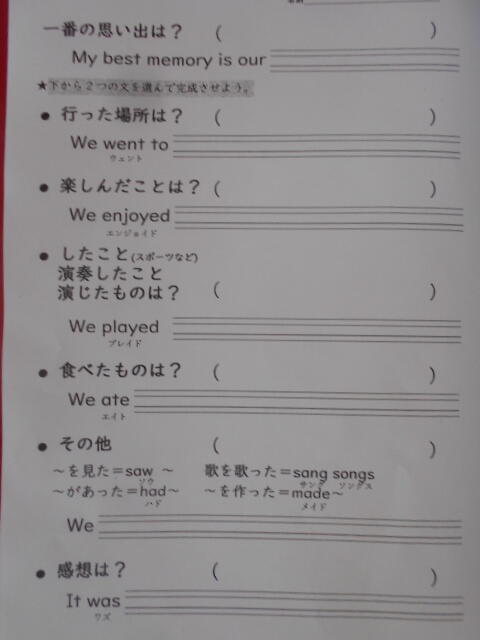 一番の思い出は？ (　　)
My best memory is our
★下から２つの文を選んで完成させよう。
● 行った場所は？ (　　)
We went to
ウェント
● 楽しんだことは？ (　　)
We enjoyed
エンジョイド
● したこと(スポーツなど)
演奏したこと
演じたものは？ (　　)
We played
プレイド
● 食べたものは？ (　　)
We ate
エイト
● その他 (　　)
～を見た＝saw ～ 歌を歌った＝sang songs
ソウ サング ソングス
～があった＝had～ ～を作った＝made～
ハド メイド
We
● 感想は？ (　　)
It was
ワズ